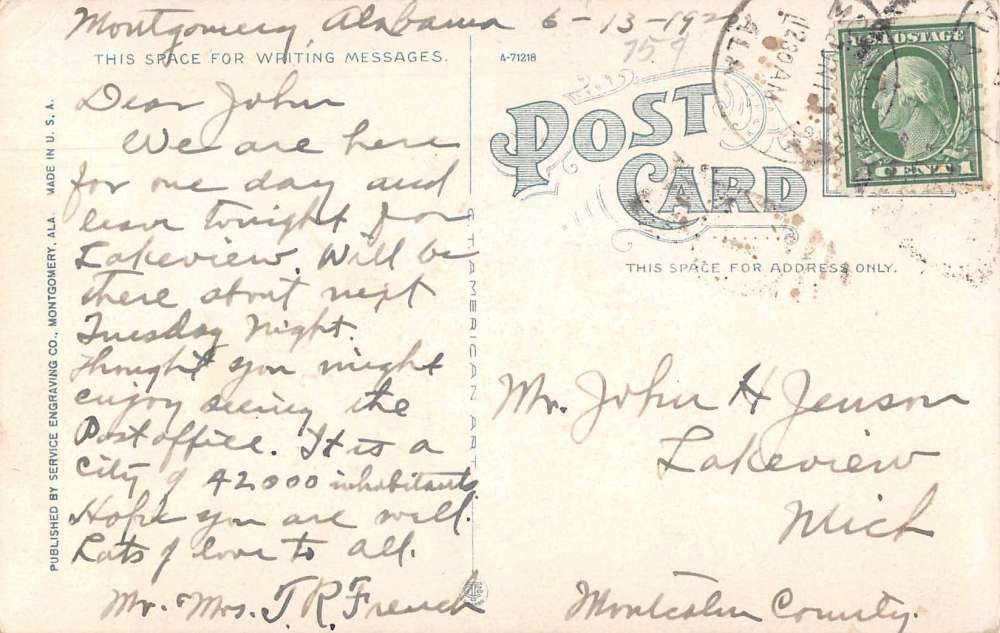 Montgomery, Alabama 6-13-192
THIS SPACE FOR WRITING MESSAGES.
A-71218
759
Dear John
We are here
for one day and
leave tonight for
Lakeview. Will be
there about next
Tuesday Night.
Thought you might
enjoy seeing the
Post office. It is a
City of 42000 inhabitants
Hope you are well.
Lots of love to all.
Mr. Mrs. J. R. French
PUBLISHED BY SERVICE ENGRAVING CO., MONTGOMERY, ALA. MADE IN U. S. A.
C. T. AMERICAN ART
POST CARD
THIS SPACE FOR ADDRESS ONLY.
ALA
12 30 AM
U.S. POSTAGE
1 CENT 1
Mr. John H Jenson
Lakeview
Mich
Montcalm County.